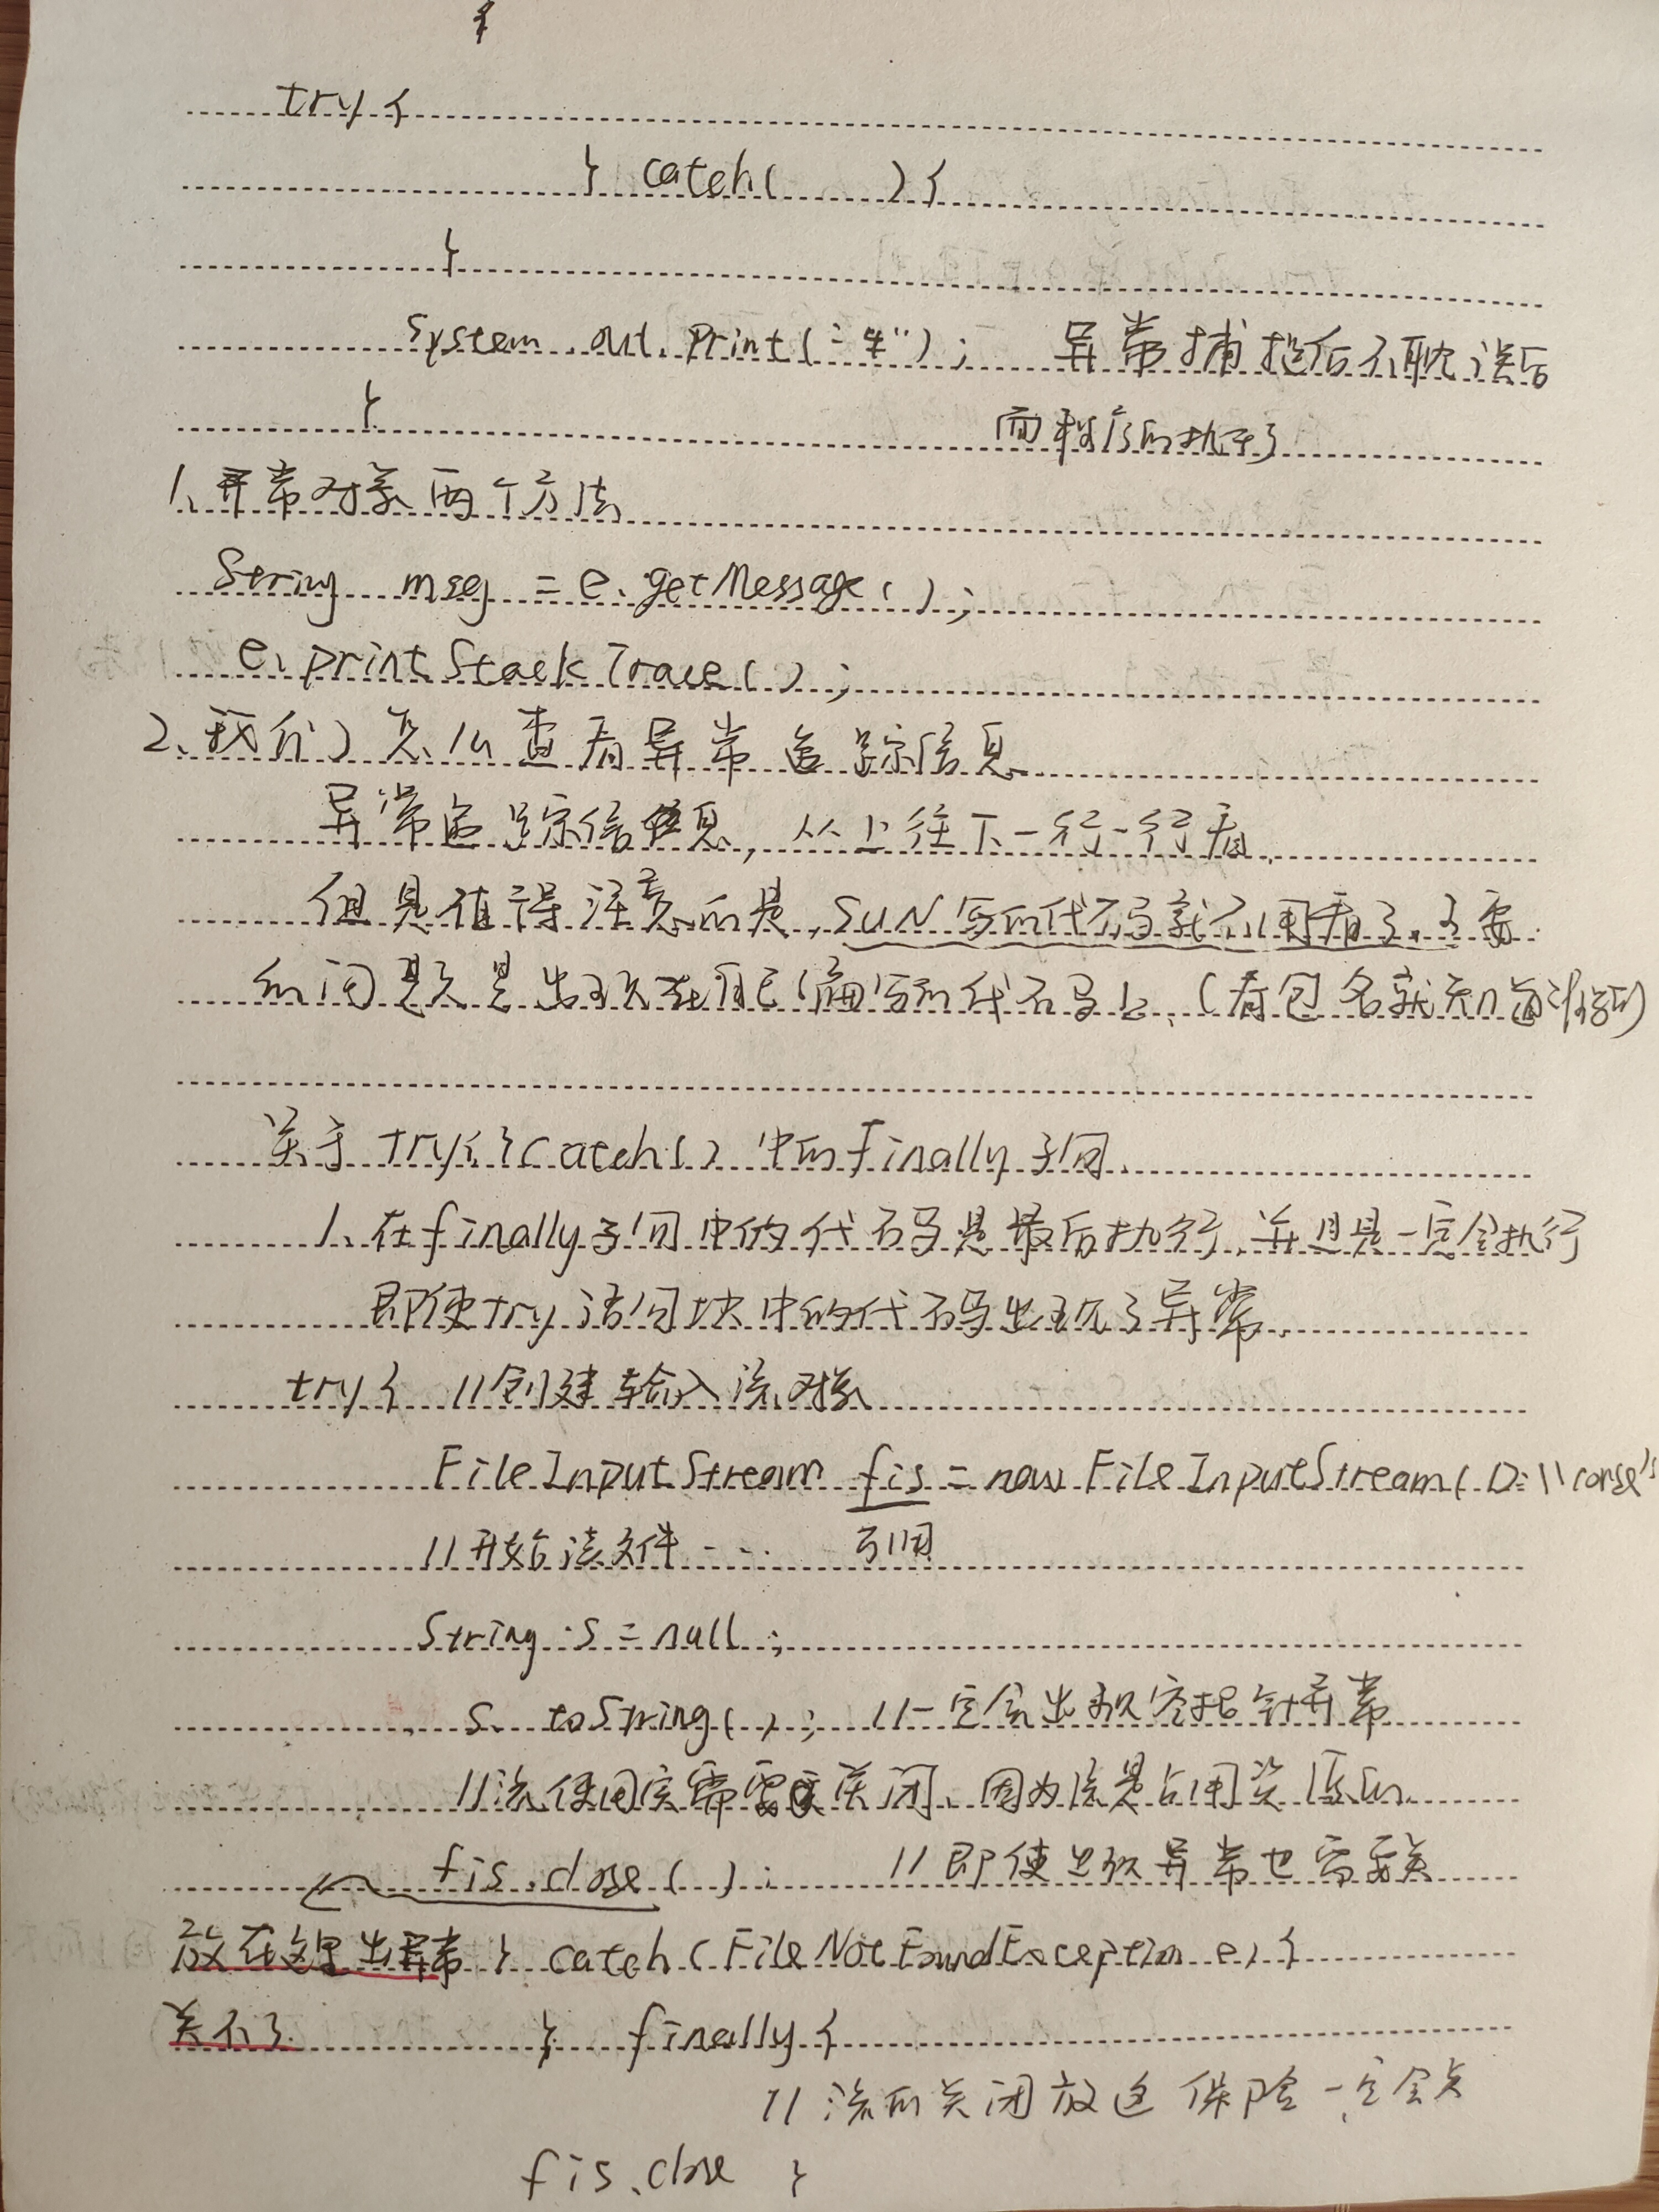 {
try {
} catch( ) {
}
System.out.print(" "); 异常捕捉后不耽误后
}
面程序的执行
1、异常对象两个方法
String msg = e.getMessage();
e.printStackTrace();
2、我们怎么查看异常追踪信息
异常追踪信息,从上往下一行一行看.
但是值得注意的是,SUN写的代码就不用看了.主要
的问题是出现在自己编写的代码上.(看包名就知道谁写的)
关于try{}catch()中的Finally子句.
1、在finally子句中的代码是最后执行,并且是一定会执行
即使try语句块中的代码出现了异常.
try { //创建输入流对象
FileInputStream fis = new FileInputStream( D:\\
//开始读文件 .... 引用
String s = null;
s. toString(); //一定会出现空指针异常
//流使用完需要关闭、因为流是占用资源的.
fis.close(); //即使出现异常也需要关
放在这里出异常 } catch(FileNotFoundException e) {
关不了. } finally {
//流的关闭放这 保险 一定会关
fis.close }